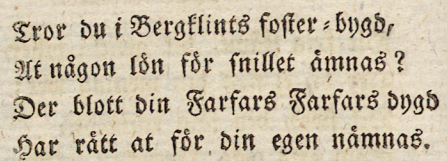 Tror du i Bergklints foster-bygd,
At någon lön för snillet ämnas?
Der blott din Farfars Farfars dygd
Har rått at för din egen nämnas.